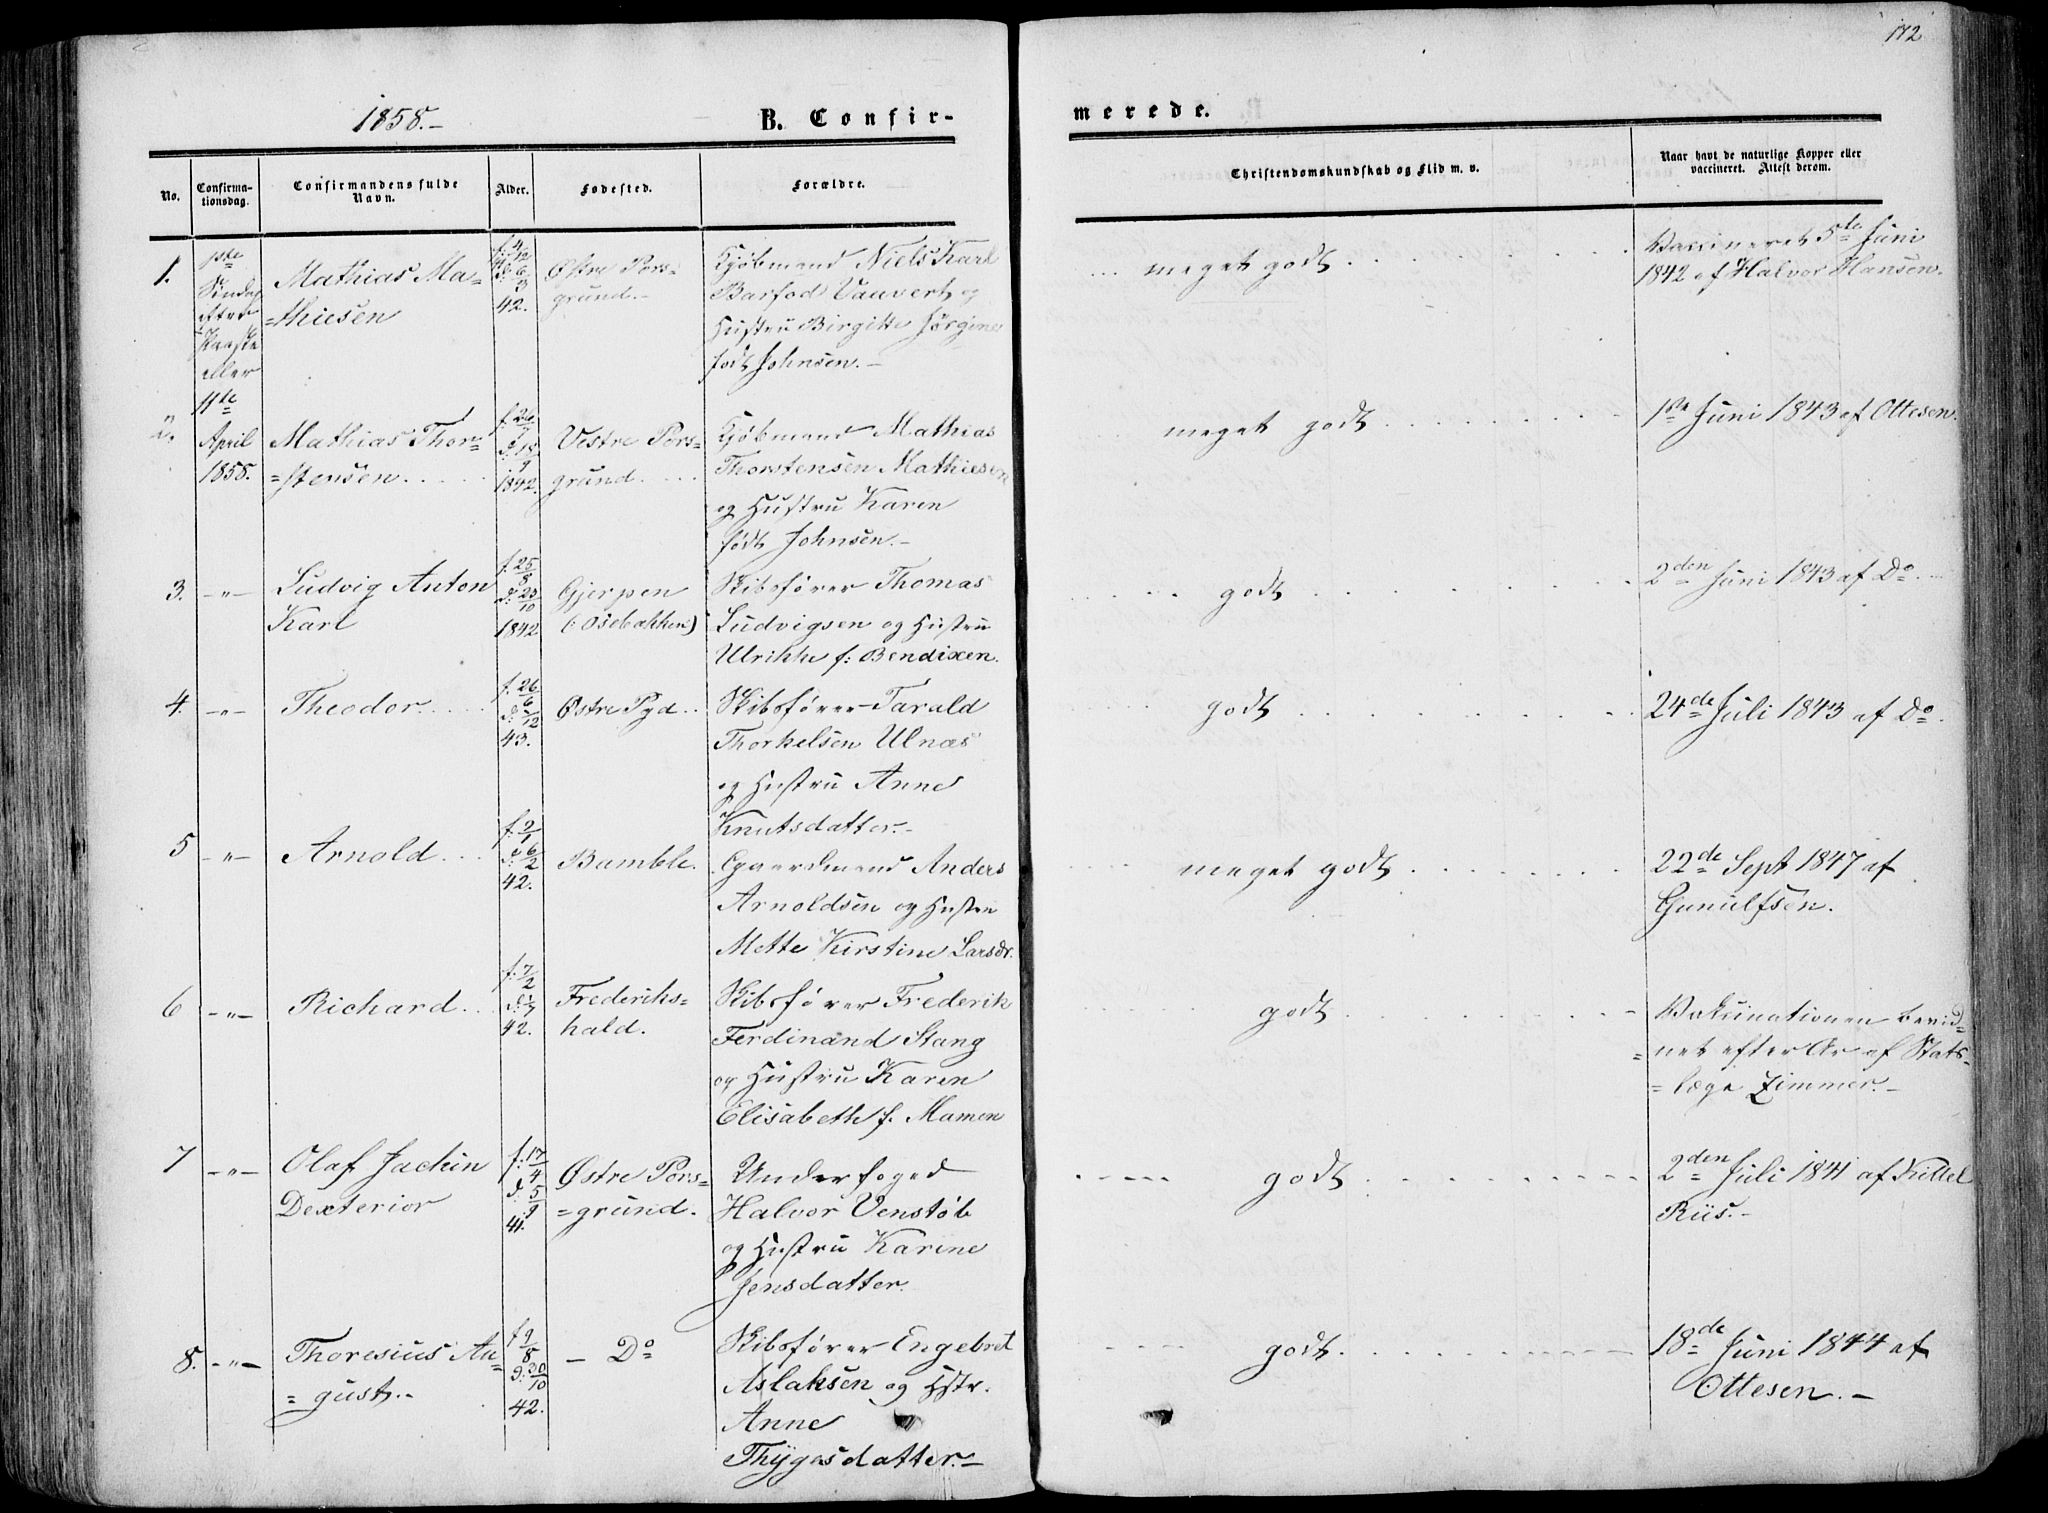 172
1858.-
B. Confir-
merede.
No.
Confirma-
tionsdag.
Confirmandens fulde
Navn.
Alder.
Fødested.
Forældre.
Christendomskundskab og Flid m. v.
Naar havt de naturlige Kopper eller
vaccineret. Attest derom.
1.
1ste
Søndag
efter
Paaske
eller
11te
April
1858.
Mathias Ma-
=thiesen
42.
Østre Pors-
grund.-
Kjøbmand Niels Karl
Barfod Vauvert og
Hustru Birgitte Jørgine
født Johnsen.-
meget godt
Vaccineret 5te Juni
1842 af Halvor Hansen.
2.
Mathias Thor-
=stensen
f: 26/7
d: 18/9
1842.
Vestre Pors-
grund.
Kjøbmand Mathias
Thorstensen Mathiesen
og Hustru Karen
født Johnsen.-
meget godt
1ste Juni 1843 af Ottesen.
3. -"-
Ludvig Anton
Karl
f: 25/8
d: 23/10
1842
Gjerpen
(:Osebakken:)
Skibsfører Thomas
Ludvigsen og Hustru
Ulrikke f: Bendixen.
godt
2den Juni 1843 af Do.
4. -"-
Theodor
f: 26/6
43.
Østre Pgd.
Skibsfører Tarald
Thorkelsen Ulnæs
og Hustru Anne
Knutsdatter.-
godt
24de Juli 1843 af Do.
5 -"-
Arnold
42.
Bamble.
Gaardmand Anders
Arnoldsen og Hustru
Mette Kirstine Larsdr.
meget godt
22de Sept 1847 af
Gunulfsen.
6 -"-
Richard
f: 7/2
42.
Frederiks-
hald.
Skibsfører Frederik
Ferdinand Stang
og Hustru Karen
Elisabeth f. Mamen
godt
Vaksinationen bevid-
=net efter Ar af Stats-
=læge Zimmer.-
7 -"-
Olaf Jachin
Dexterior
f: 17/4
d: 5/9
41.
Østre Pors-
=grund.
Underfoged
Halvor Venstøb
og Hustru Karine
Jensdatter.
godt
2den Juli 1841 af Kittel
Riis.-
8. -"-
Thoresius Au-
=gust.-
f 9/8
d: 30/10
42.
- Do
Skibsfører Engebret
Aslaksen og Hstr.
Anne
Thygesdatter.-
godt
18de Juni 1844 af
Ottesen.-